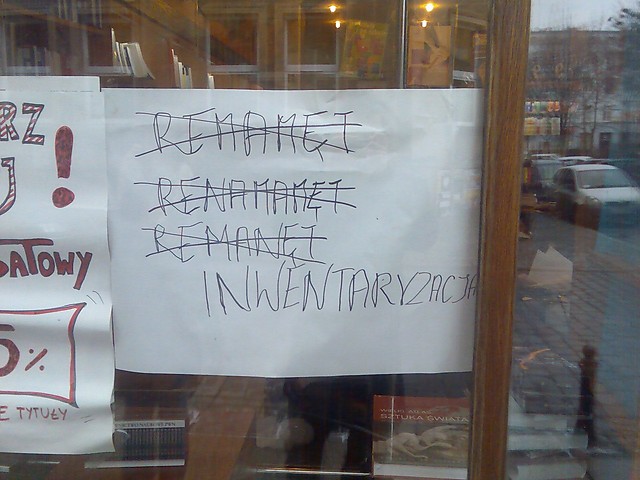 RZ
J !
BATOWY
5%
E TYTUŁY
REMAMĘT
RENAMAMĘT
REMANĘT
INWENTARYZACJA
SZTUKA ŚWIATA